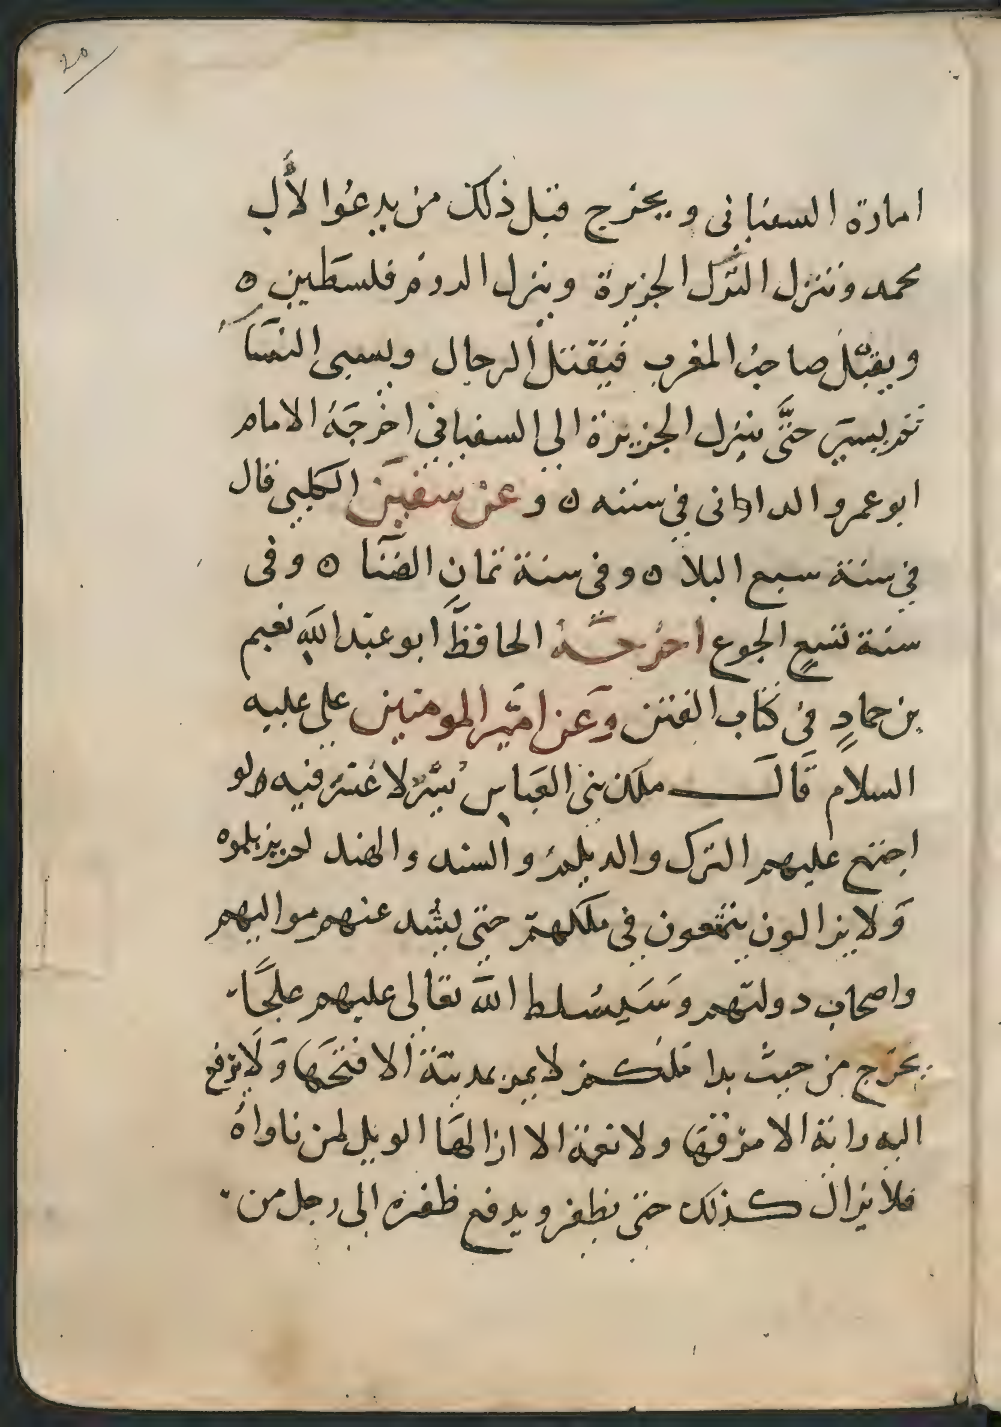 ٢٥
امارة السفيانى ويخرج قبل ذلك من يدعوا لأل
محمد وتنزل الترك الجزيرة وينزل الروم فلسطين ه
ويقبل صاحب المغرب فيقتل الرجال ويسبى النسآ
ثم يسير حتَّى ينزل الجزيرة الى السفيانى اخرجه الامام
ابو عمرو الدانى فى سننه ه وعن سفين الكلبى قال
فى سنة سبع البلا ه وفى سنة ثمان الفنا ه وفى
سنة تسعٍ الجوع اخرجه الحافظ ابو عبد الله نعيم
بن حمادٍ فى كتاب الفتن وعن امير المومنين على عليه
السلام قال ملك بنى العباس يسر لا عسر فيه ولو
اجتمع عليهم الترك والديلم والسند والهند لم يزيلوه
ولا يزالون يتمتعون فى ملكهم حتى يشد عنهم مواليهم
واصحاب دولتهم وسَيسُلط الله تعالى عليهم علجًا
يخرج من حيث بدا ملكهم لا يمر بمدينة الا فتحها ولا يرفع
اليه راية الا مزقها ولا نعمة الا ازالها الويل لمن ناواه
فلا يزال كذلك حتى يظفر ويدفع ظفره الى رجل من